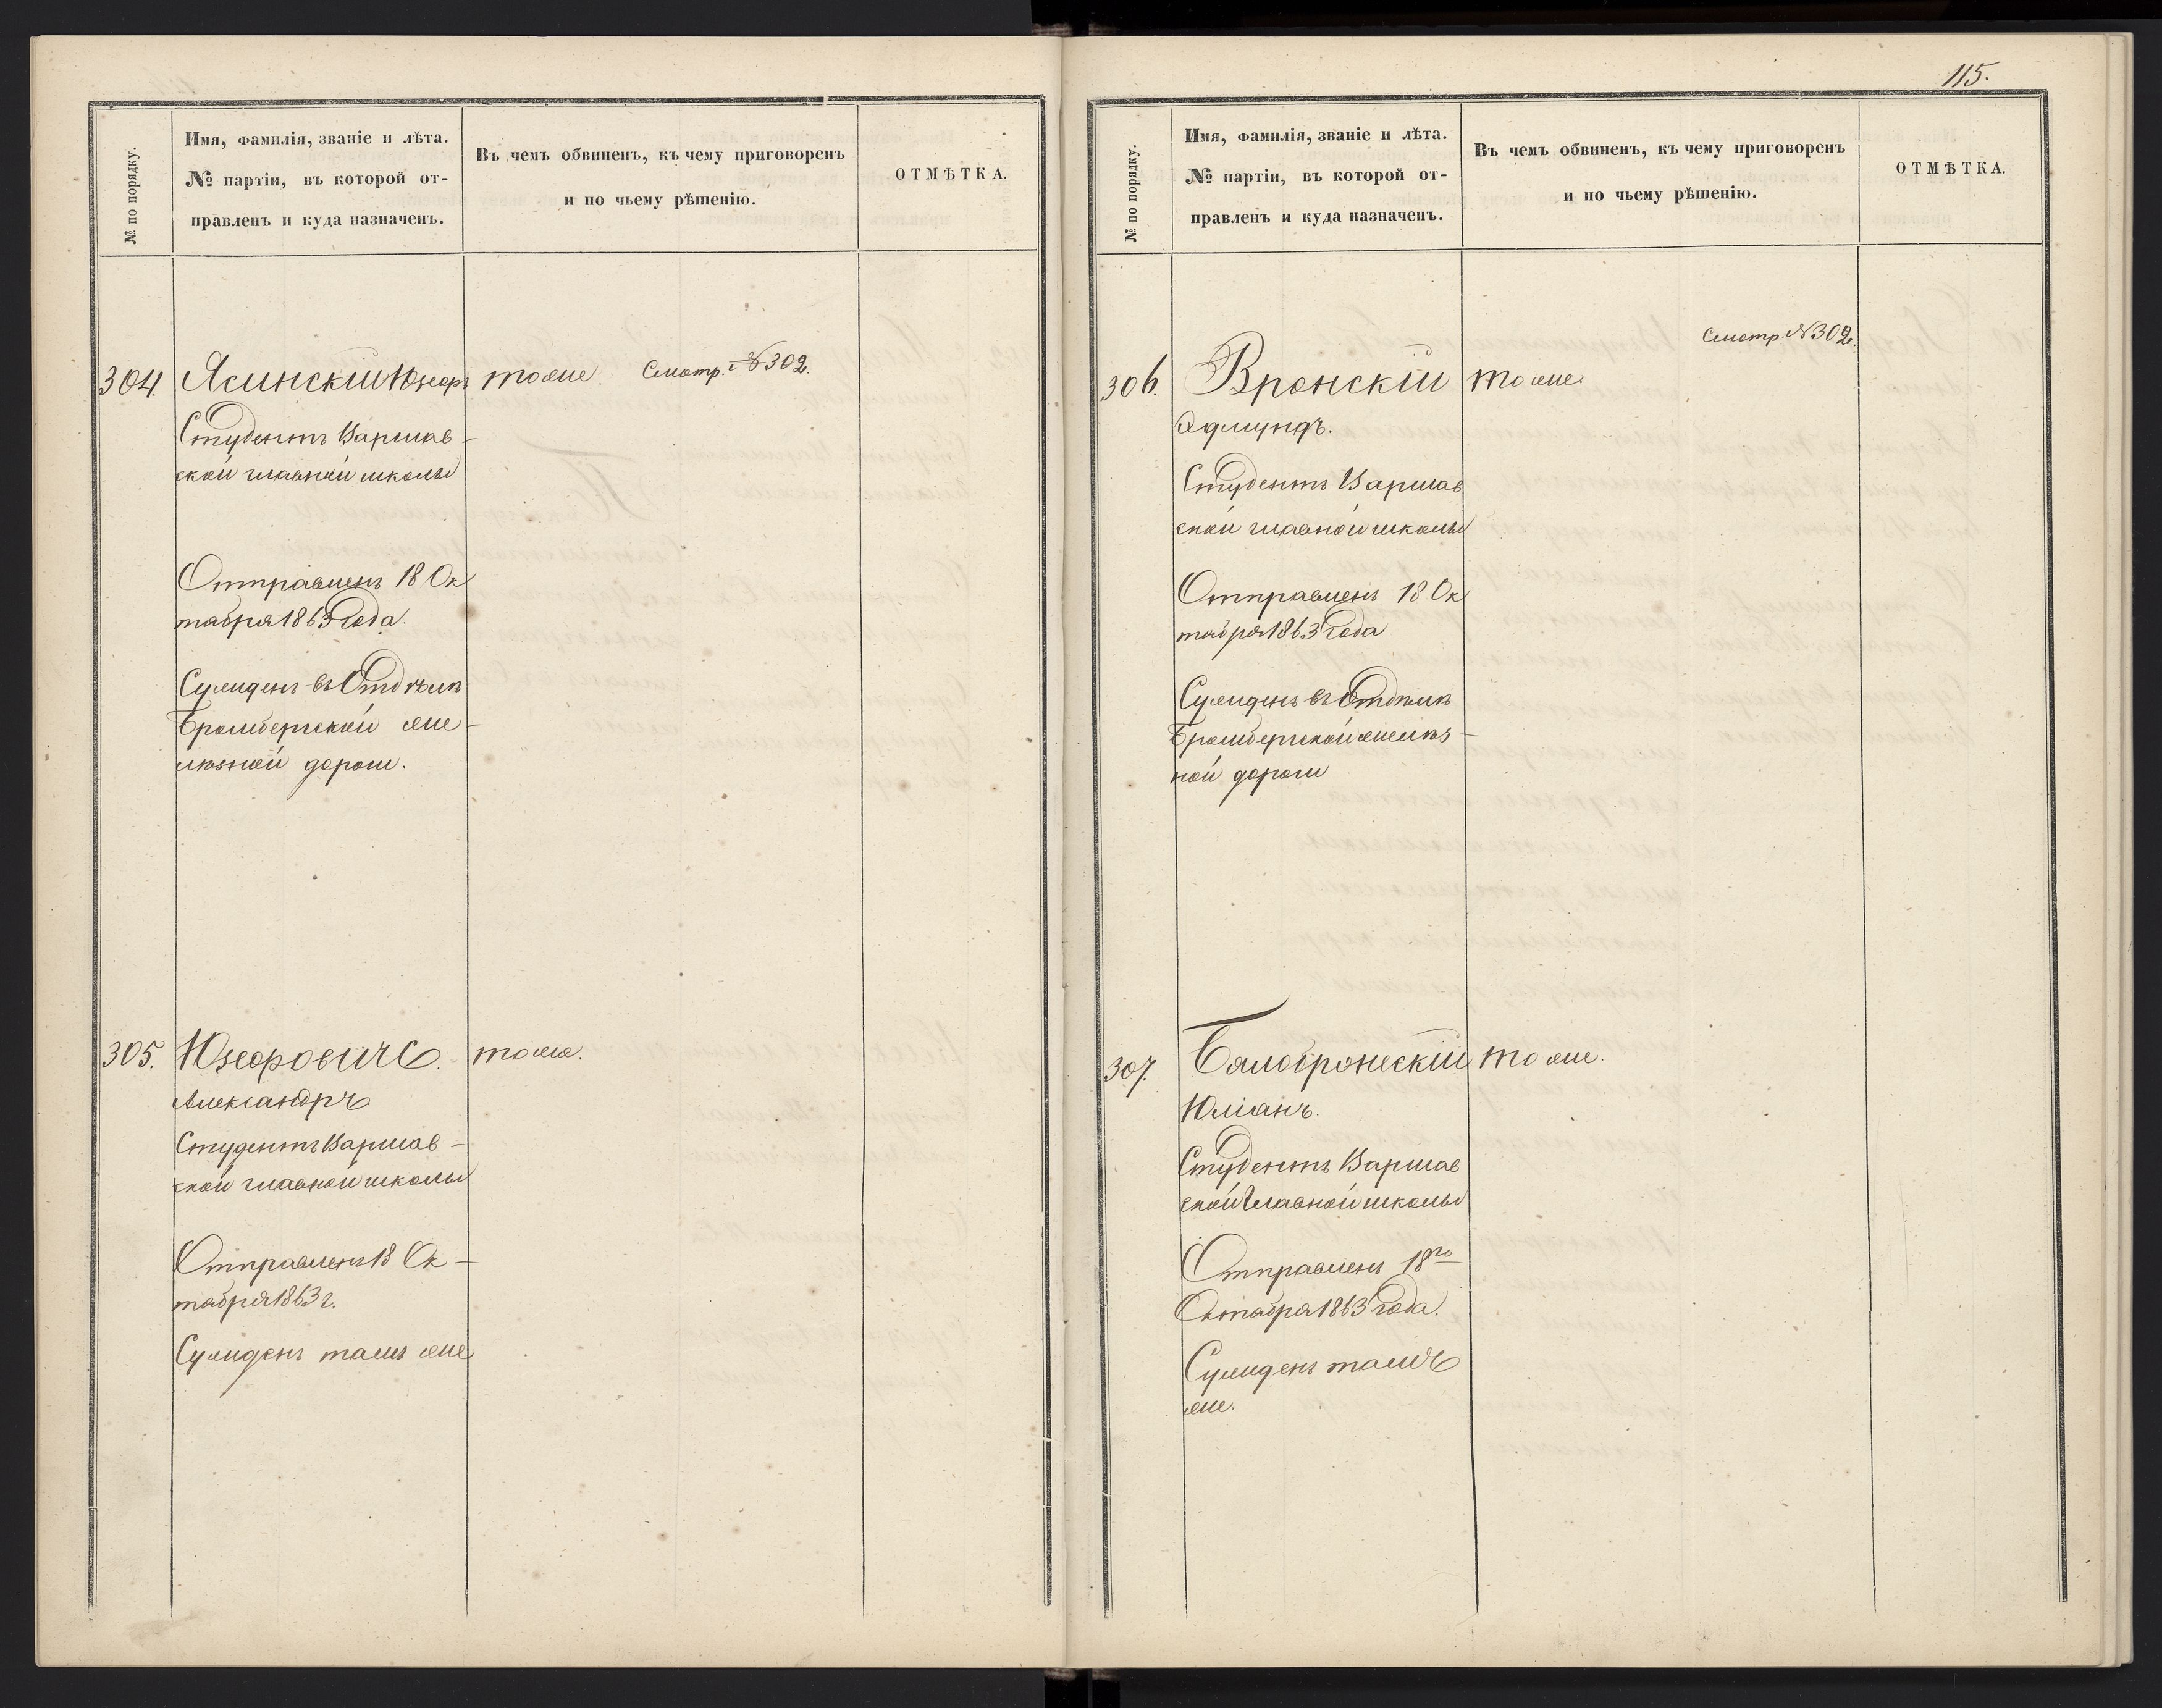 № по порядку.
Имя, фамилія, званіе и лѣта.
№ партіи, въ которой от-
правленъ и куда назначенъ.
Въ чемъ обвиненъ, къ чему приговоренъ
и по чьему рѣшенію.
ОТМѢТКА.
304. Ясинскій Юзефъ тоже Смотр. № 302.
Студентъ Варшав-
ской главной школы
Отправленъ 18 Ок
тября 1863 года.
Сужденъ въ Отдѣлѣ
Бромбергской же-
лѣзной дороги.
305. Юзефовичъ. тоже.
Александръ
Студентъ Варшав-
ской главной школы
Отправленъ 18 Ок-
тября 1863 г.
Сужденъ тамъ же
115.
№ по порядку.
Имя, фамилія, званіе и лѣта.
№ партіи, въ которой от-
правленъ и куда назначенъ.
Въ чемъ обвиненъ, къ чему приговоренъ
и по чьему рѣшенію.
ОТМѢТКА.
Смотр. № 302.
306. Вронскій тоже.
Эдмундъ.
Студентъ Варшав
ской главной школы
Отправленъ 18 Ок
тября 1863 года
Сужденъ въ Отдѣлѣ
Бромбергской желѣз-
ной дороги
307. Бялобронескій тоже.
Юліанъ.
Студентъ Варшав
ской Главной школы
Отправленъ 18го
Октября 1863 года.
Сужденъ тамъ
же.